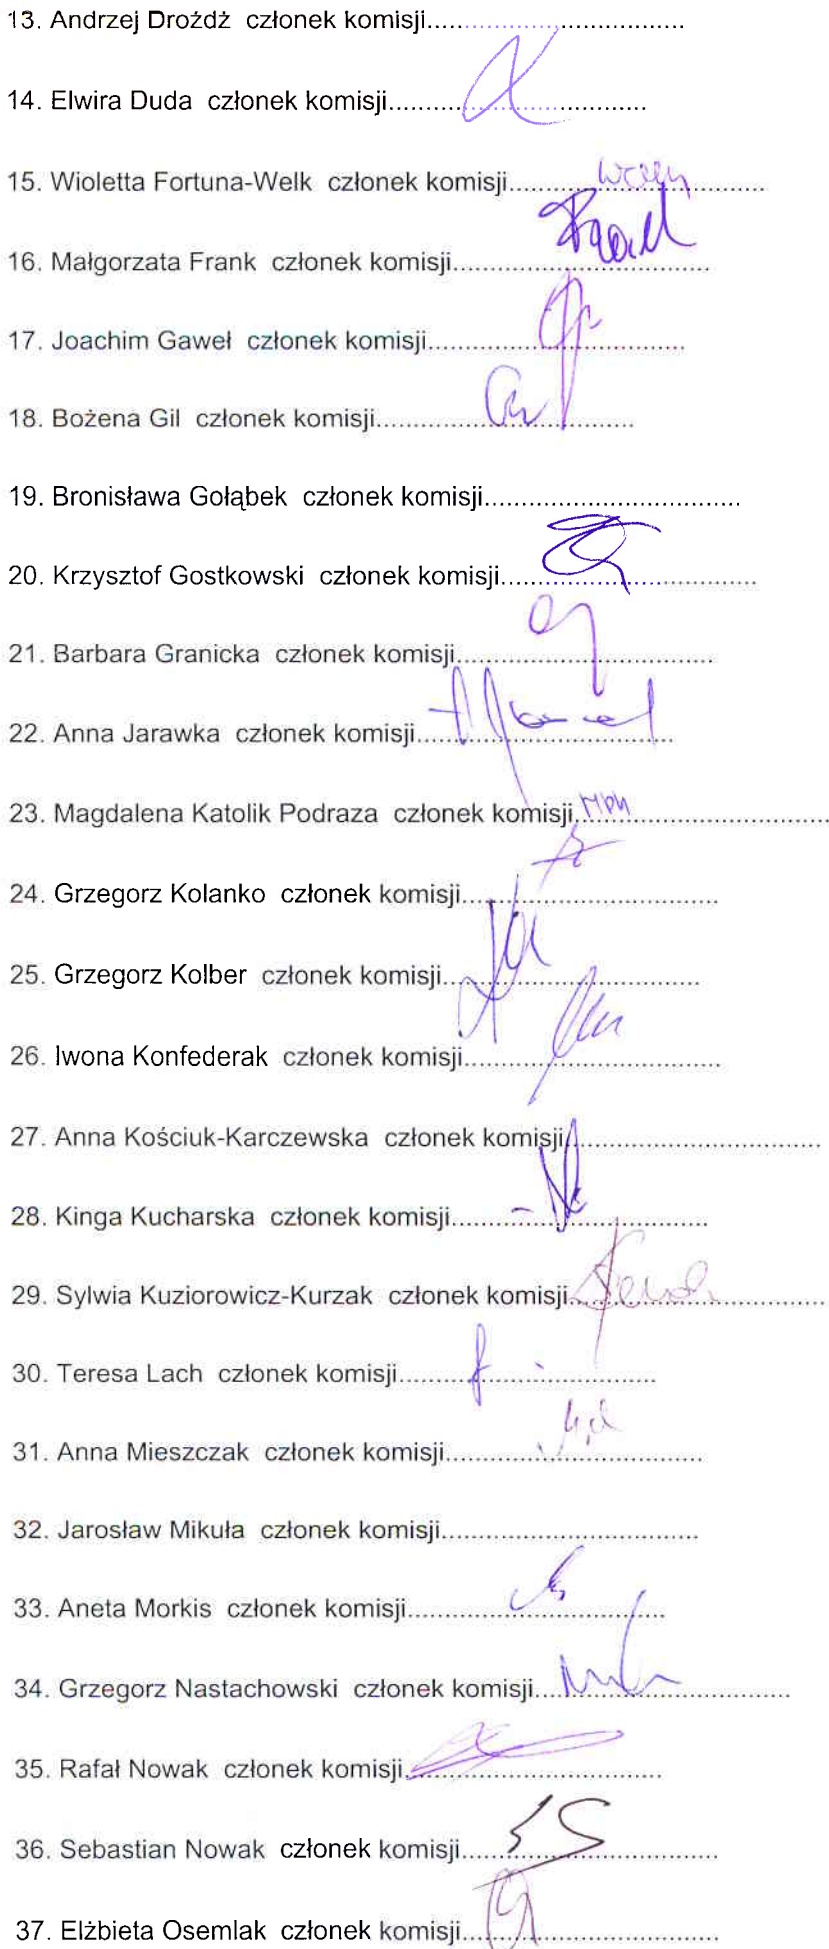 13. Andrzej Droźdż członek komisji..................................
14. Elwira Duda członek komisji..................................
15. Wioletta Fortuna-Welk członek komisji..................................
16. Małgorzata Frank członek komisji..................................
17. Joachim Gaweł członek komisji..................................
18. Bożena Gil członek komisji..................................
19. Bronisława Gołąbek członek komisji..................................
20. Krzysztof Gostkowski członek komisji..................................
21. Barbara Granicka członek komisji..................................
22. Anna Jarawka członek komisji..................................
23. Magdalena Katolik Podraza członek komisji..................................
24. Grzegorz Kolanko członek komisji..................................
25. Grzegorz Kolber członek komisji..................................
26. Iwona Konfederak członek komisji..................................
27. Anna Kościuk-Karczewska członek komisji..................................
28. Kinga Kucharska członek komisji..................................
29. Sylwia Kuziorowicz-Kurzak członek komisji..................................
30. Teresa Lach członek komisji..................................
31. Anna Mieszczak członek komisji..................................
32. Jarosław Mikuła członek komisji..................................
33. Aneta Morkis członek komisji..................................
34. Grzegorz Nastachowski członek komisji..................................
35. Rafał Nowak członek komisji..................................
36. Sebastian Nowak członek komisji..................................
37. Elżbieta Osemlak członek komisji..................................